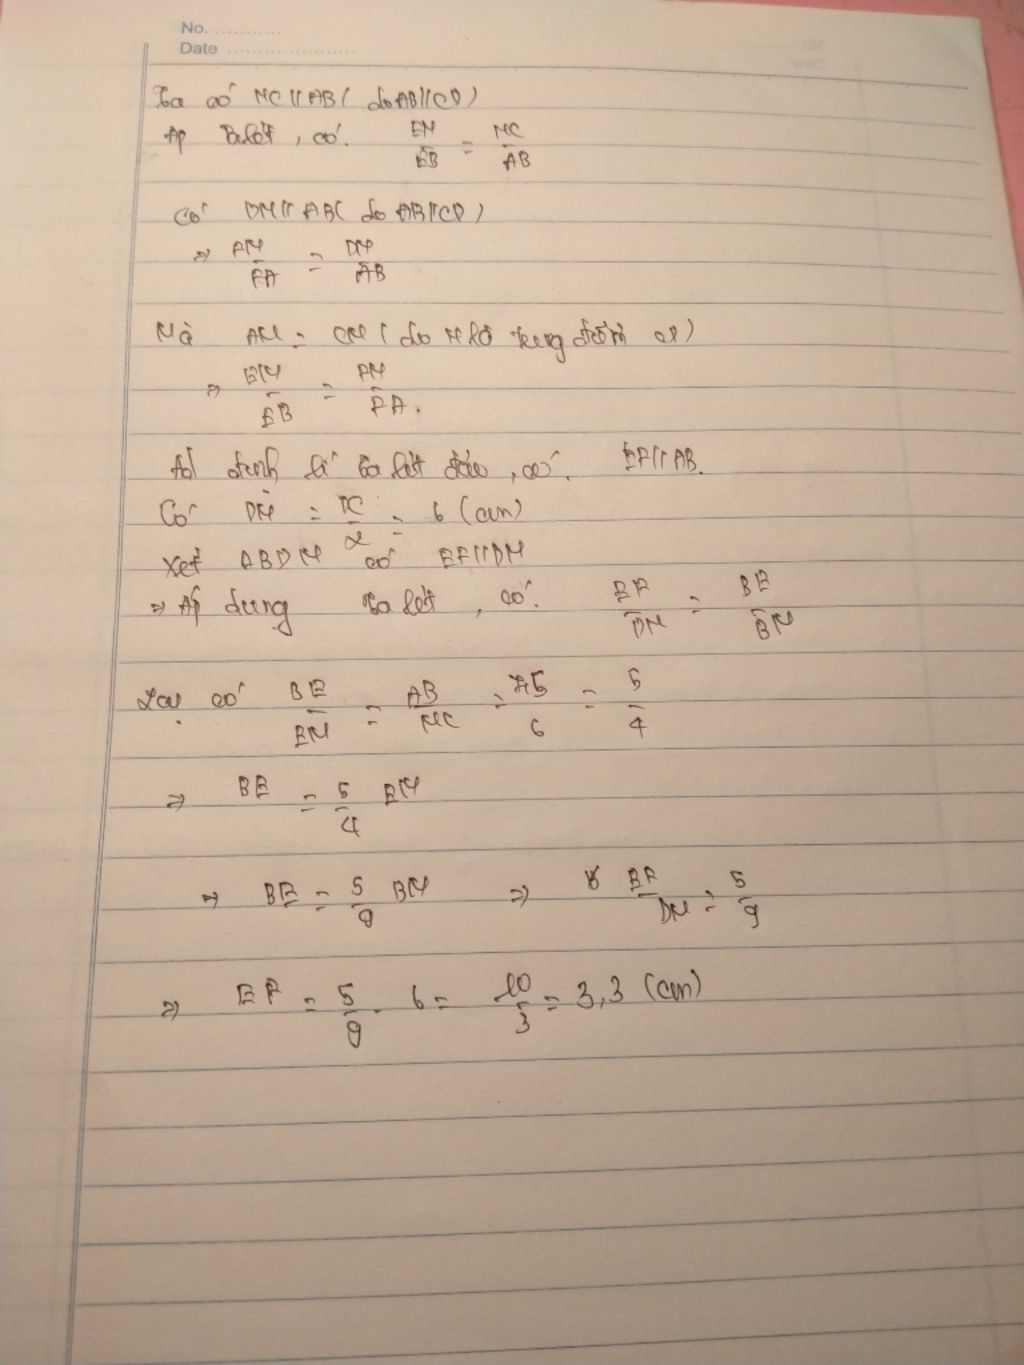 No. ............
Date ......................
Ta có MC // AB ( do AB // CD )
Áp Talét, có. EM/EB = MC/AB
Có DM // AB ( do AB // CD )
⇒ FM/FA = DM/AB
Mà = CM ( do M là trung điểm )
⇒ EM/EB = FM/FA.
định lí Ta lét đảo, có. EF // AB.
Có DM = DC/2 = 6 (cm)
Xét ΔBDM có EF // DM
⇒ Áp dụng Ta lét, có. EF/DM = BE/BM
Lại có BE/EM = AB/MC = 7,5/6 = 5/4
⇒ BE = 5/4 EM
⇒ BE = 5/9 BM ⇒ EF/DM = 5/9
⇒ EF = 5/9 . 6 = 10/3 = 3,3 (cm)